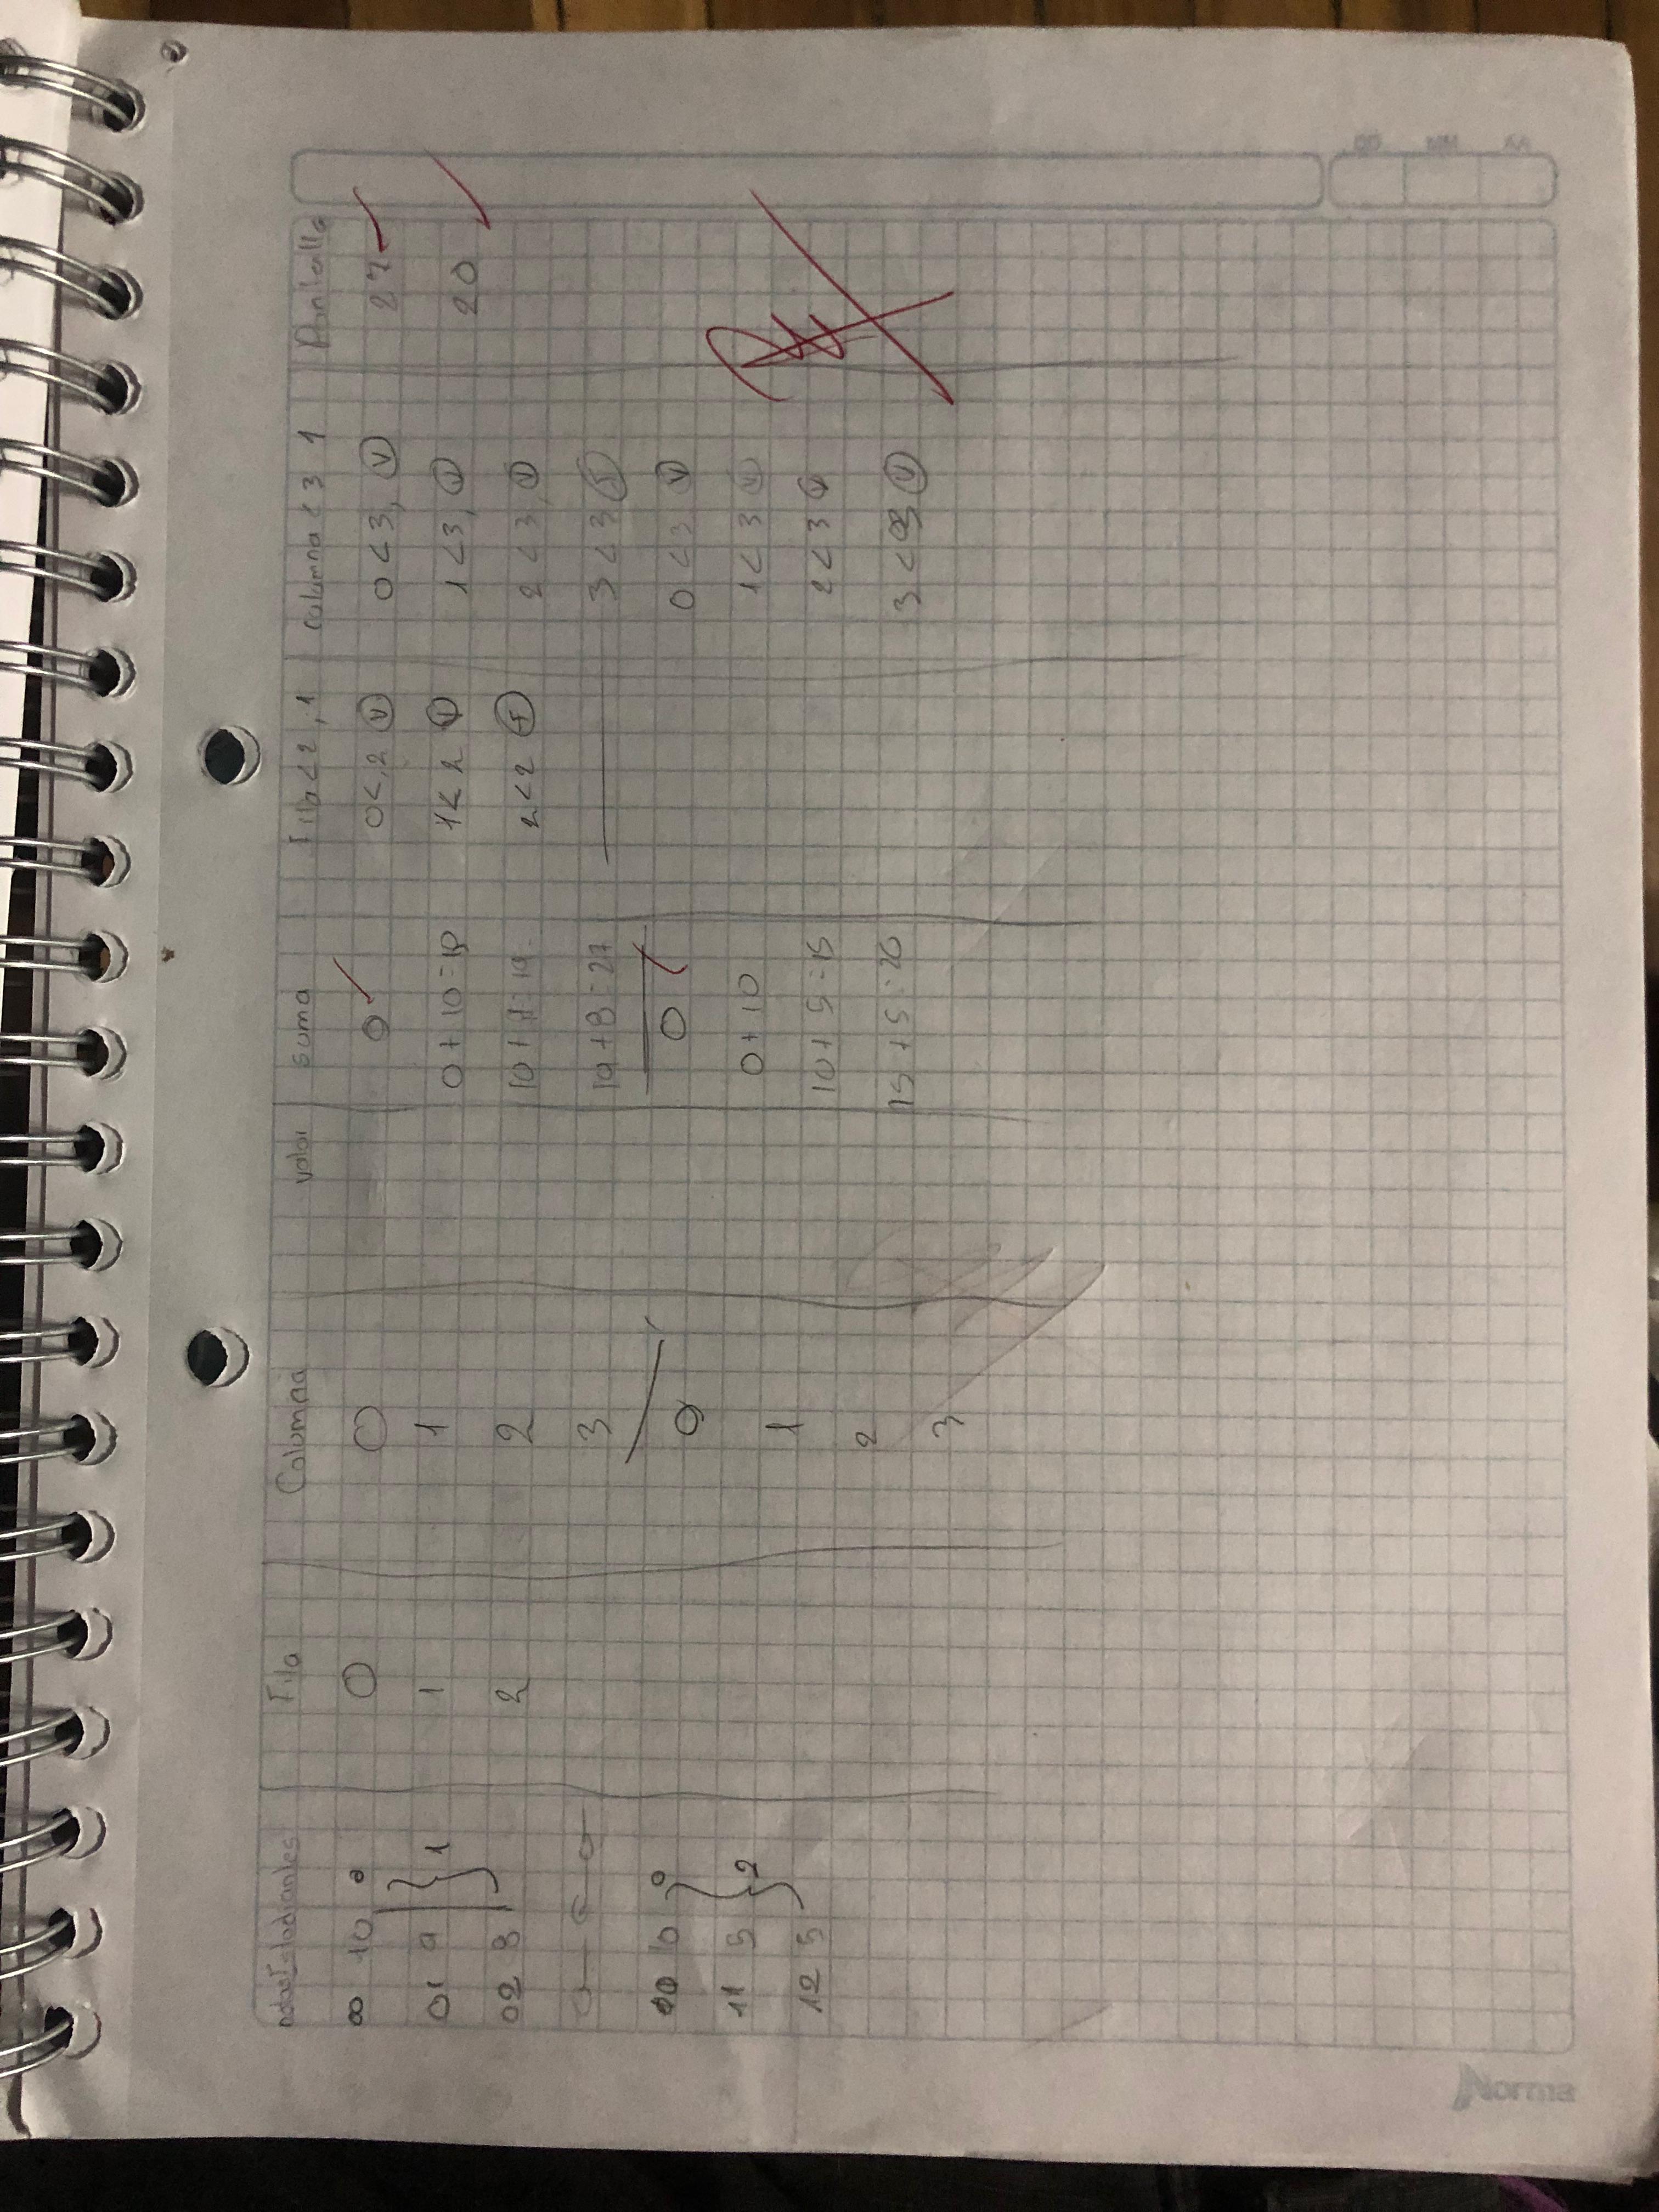 notasEstudiantes Fila Columna valor suma Fila<2,1 columna<3 1 Pantalla
00 10 0 0 0 0 0<2 V 0<3, V 27
01 9 } 1 1 1 0+10=10 1<2 V 1<3, V 20
02 8 2 2 10+9=19 2<2 F 2<3, V
3 19+8=27 3<3 F
10 10 0 0 0 0<3 V
11 5 } 2 1 0+10 1<3 V
12 5 2 10+5=15 2<3 V
3 15+5=20 3<3
Norma